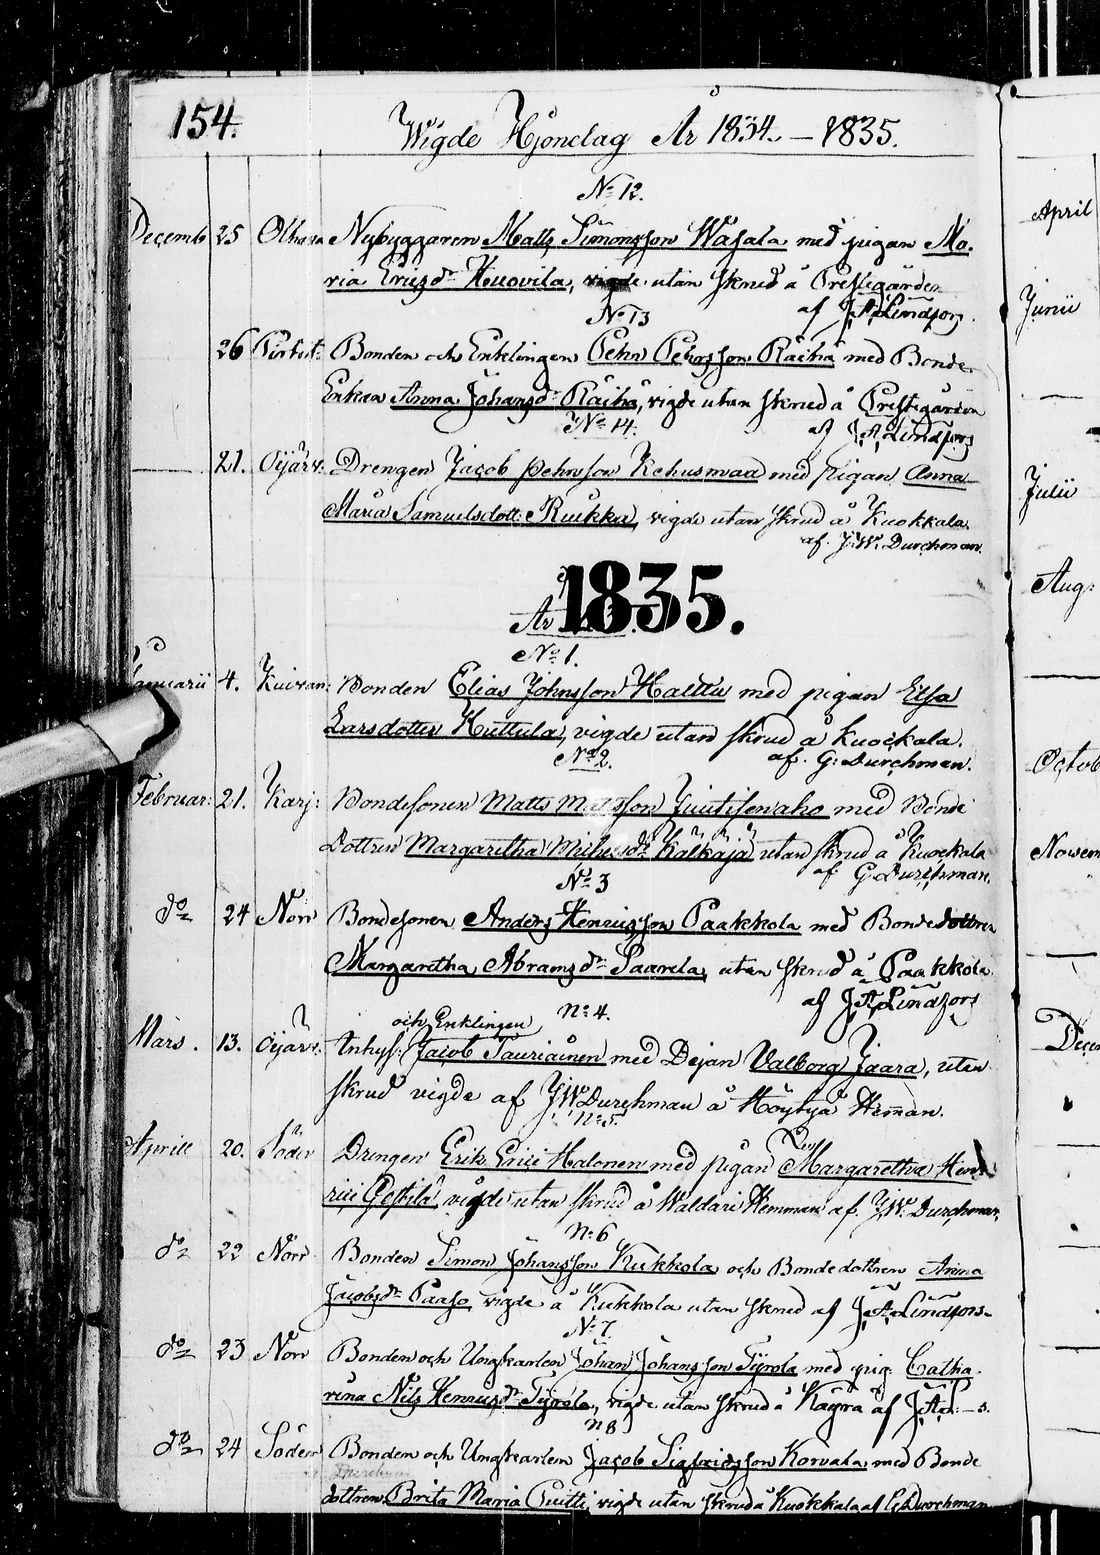 154.
Wigde Hjonelag År 1834. – 1835.
No 12.
Decemb 25 Olhava Nybyggaren Matts Simonsson Wasala med pigan Ma-
ria Ericsdr Huovila, vigde utan skrud å Prestegården
af J.A. Lindfors.
No 13
26 Bonden och Enklingen Pehr Pehrsson Räihä med Bonde
Enkan Anna Johansdr Räihä, vigde utan skrud å Prestegården
No 14. af J.A. Lindfors
21. Oijärv. Drengen Jacob Pehrsson Kehusmaa med pigan Anna
Maria Samuelsdott: Ruikka, vigde utan skrud å Kuokkala
af. J.W. Durchman.
År 1835.
No 1.
Januarii 4. Kuivan: Bonden Elias Johnsson Halttu med pigan Elsa
Larsdotter Huttula, vigde utan skrud å Kuokkala.
No 2. af. G: Durchman.
Februar: 21. Karj: Bondesonen Matts Mattsson med Bonde
Dottren Margaretha Kälkäjä utan skrud å Kuokkala
af G Durchman.
No 3
do 24 Norr Bondesonen Anders Henricsson Paakkola med Bondedottren
Margaretha Abramsdr Saarela, utan skrud å Paakkola
af J.A. Lindfors
och Enklingen No 4.
Mars. 13. Oijärv. Inhys: Jacob Tauriainen med Dejan Valborg Jaara, utan
skrud vigde af J.W. Durchman å Höyhyä Heman.
No 5.
Aprill 20. Söder Drengen Erik Erici Halonen med pigan Margaretha Hen-
rici vigde utan skrud å Waldari Hemman af. J.W. Durchman,
No 6
do 22 Norr Bonden Simon Johansson Kukkola och Bondedottren Anna
Jacobsdr Paaso, vigde å Kukkola utan skrud af J.A. Lindfors
No 7.
do 23 Norr Bonden och Ungkarlen Johan Johansson Työrlä med pig. Catha-
rina Nils Henricsdr vigde utan skrud å Kägrä af J.A.L–s.
N 8
do 24 Söder Bonden och Ungkarlen Jacob Sigfridsson Korvala med Bonde
dottren Brita Maria Puitti, vigde utan skrud å Kuokkala af G Durchman
April
Junii
Julii
Aug:
Octob
Novem
Decem